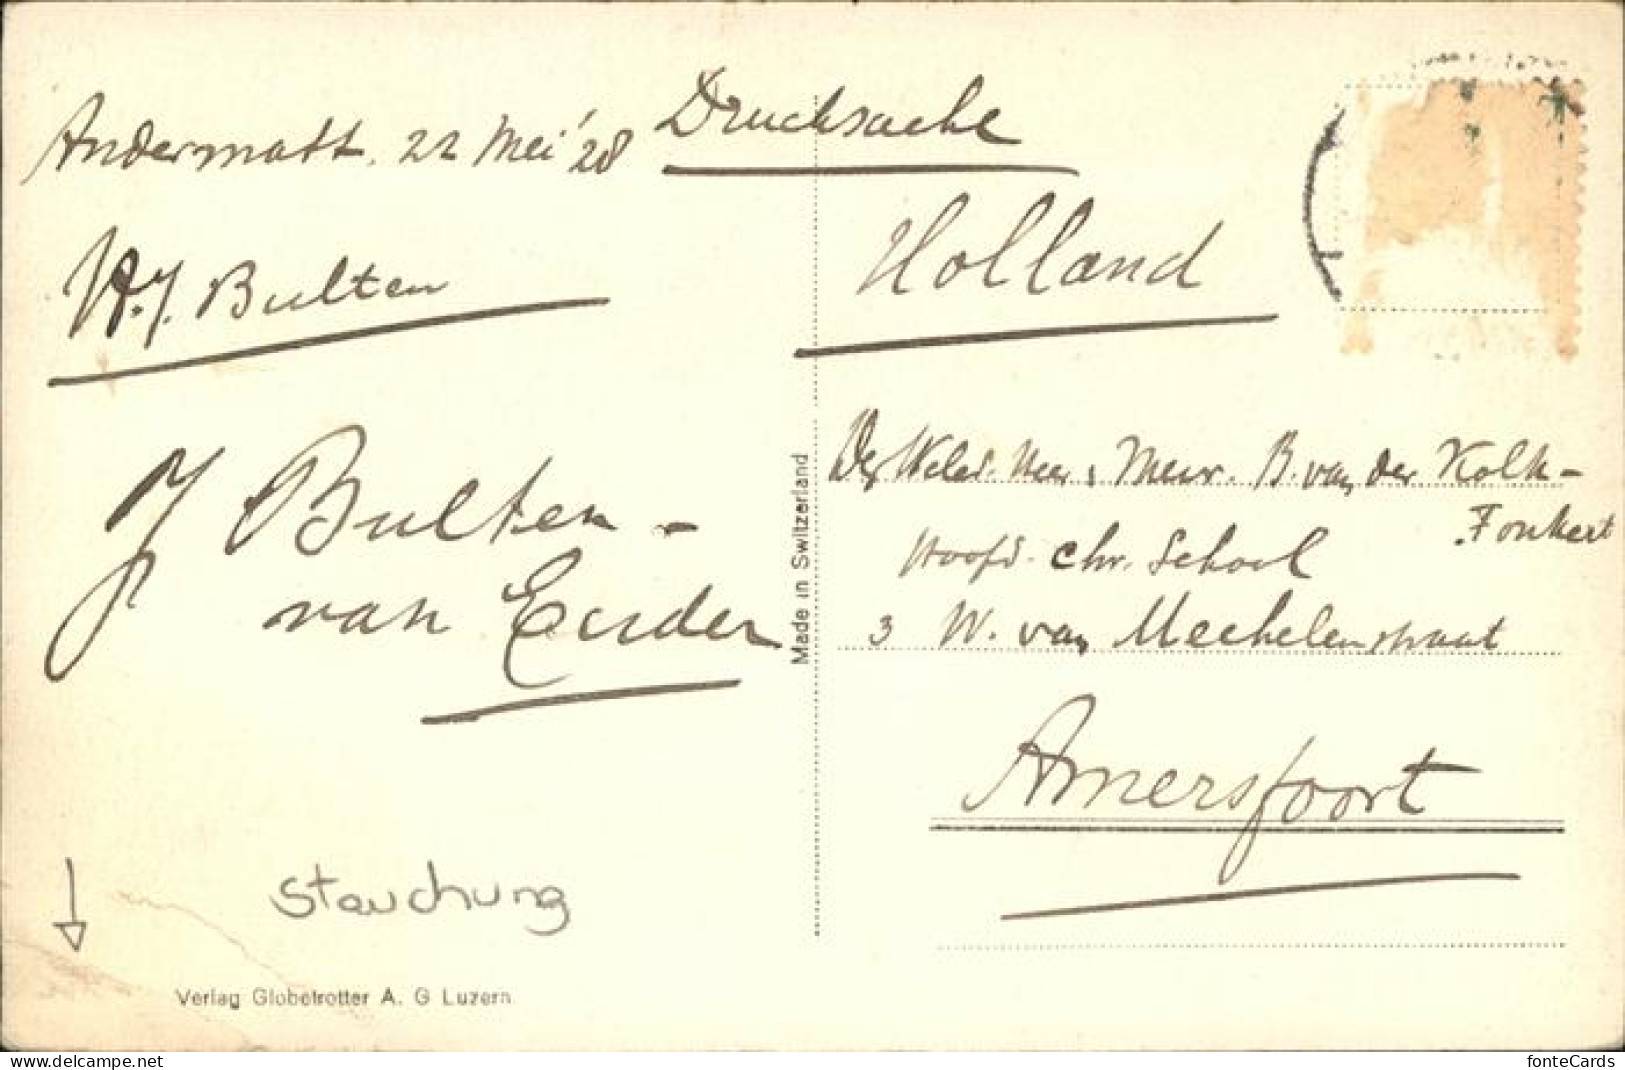 Andermatt. 22 Mei '28
W.J. Bulten
J Bulten -
van Euden
Stauchung
Verlag Globetrotter A. G Luzern
Made in Switzerland
Drucksache
Holland
Heer & Mevr. B. van der Kolk -
Fonkert
Hoofd. Chr. School
3 W. van Mechelenstraat
Amersfoort
www.delcampe.net
fonteCards